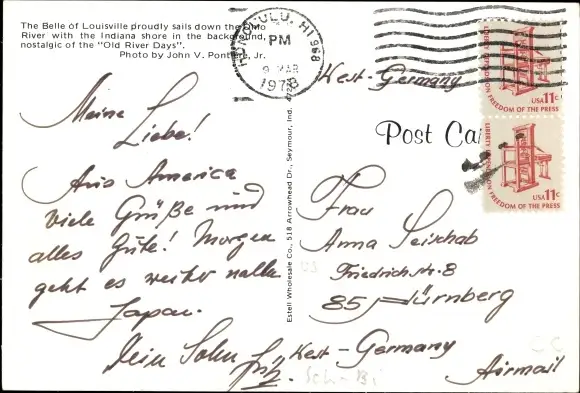 The Belle of Louisville proudly sails down the Ohio
River with the Indiana shore in the background,
nostalgic of the "Old River Days".
Photo by John V. Jr.
HONOLULU, HI 968
PM
9 MAR
1978
West-Germany
USA 11c
LIBERTY DEPENDS ON FREEDOM OF THE PRESS
USA 11c
LIBERTY DEPENDS ON FREEDOM OF THE PRESS
Post Ca
Meine
Liebe!
Aus America
viele Grüße und
alles Gute! Morgen
geht es weiter nach
Japan.
Dein Sohn Fritz.
Estell Wholesale Co., 518 Arrowhead Dr., Seymour, Ind. 47274
Frau
Anna Seischab
Friedrichstr. 8
85 Nürnberg
West-Germany
Airmail